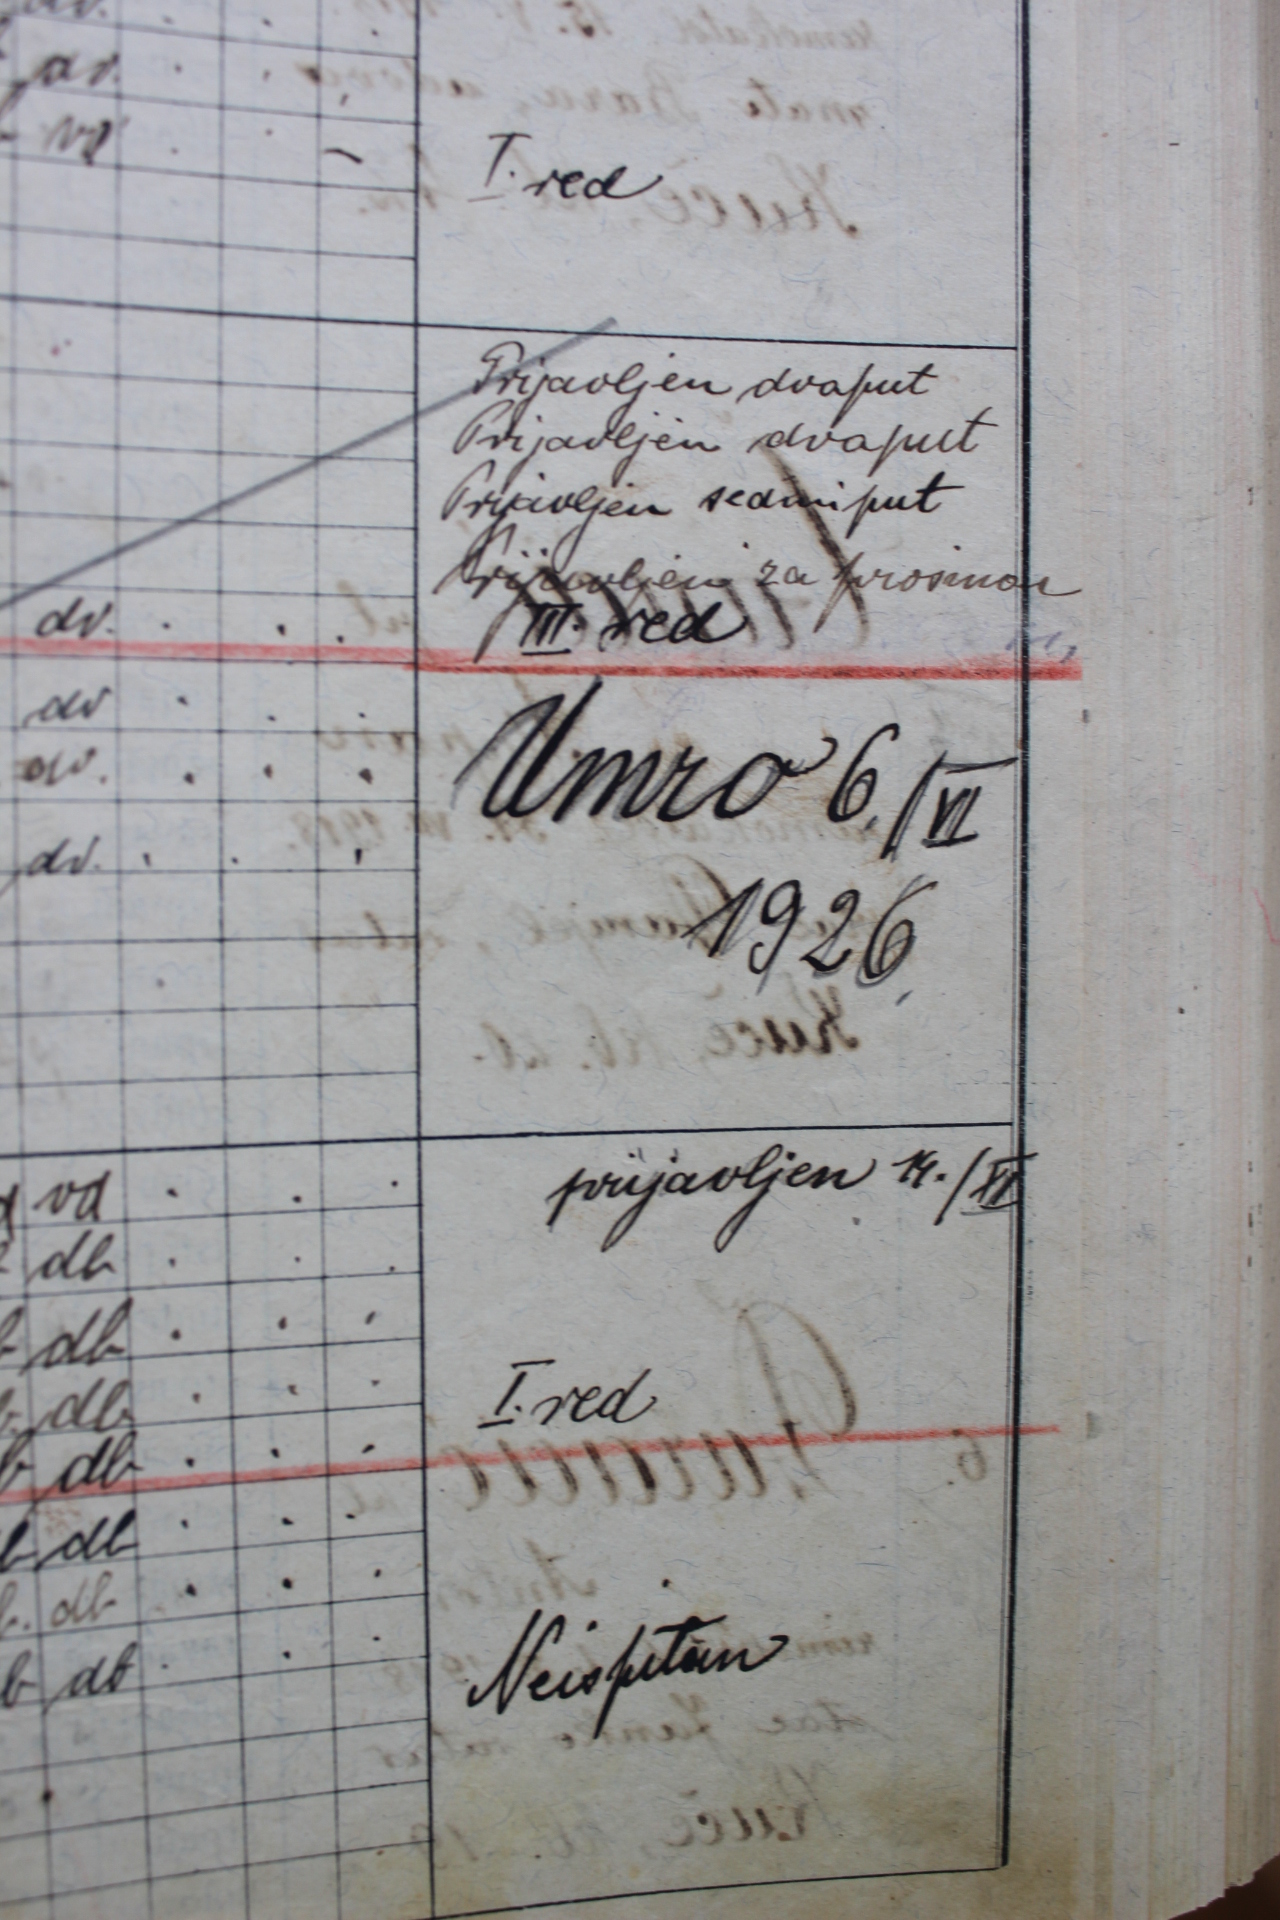 av.
vd
I. red
Prijavljen dvaput
Prijavljen dvaput
Prijavljen sedmiput
Prijavljen za prosinac
dv. III. red
dv
Umro 6./VI
dv.
dv. 1926.
vd prijavljen 14./XI
db
db
db I. red
db
db
db
db Neispitan